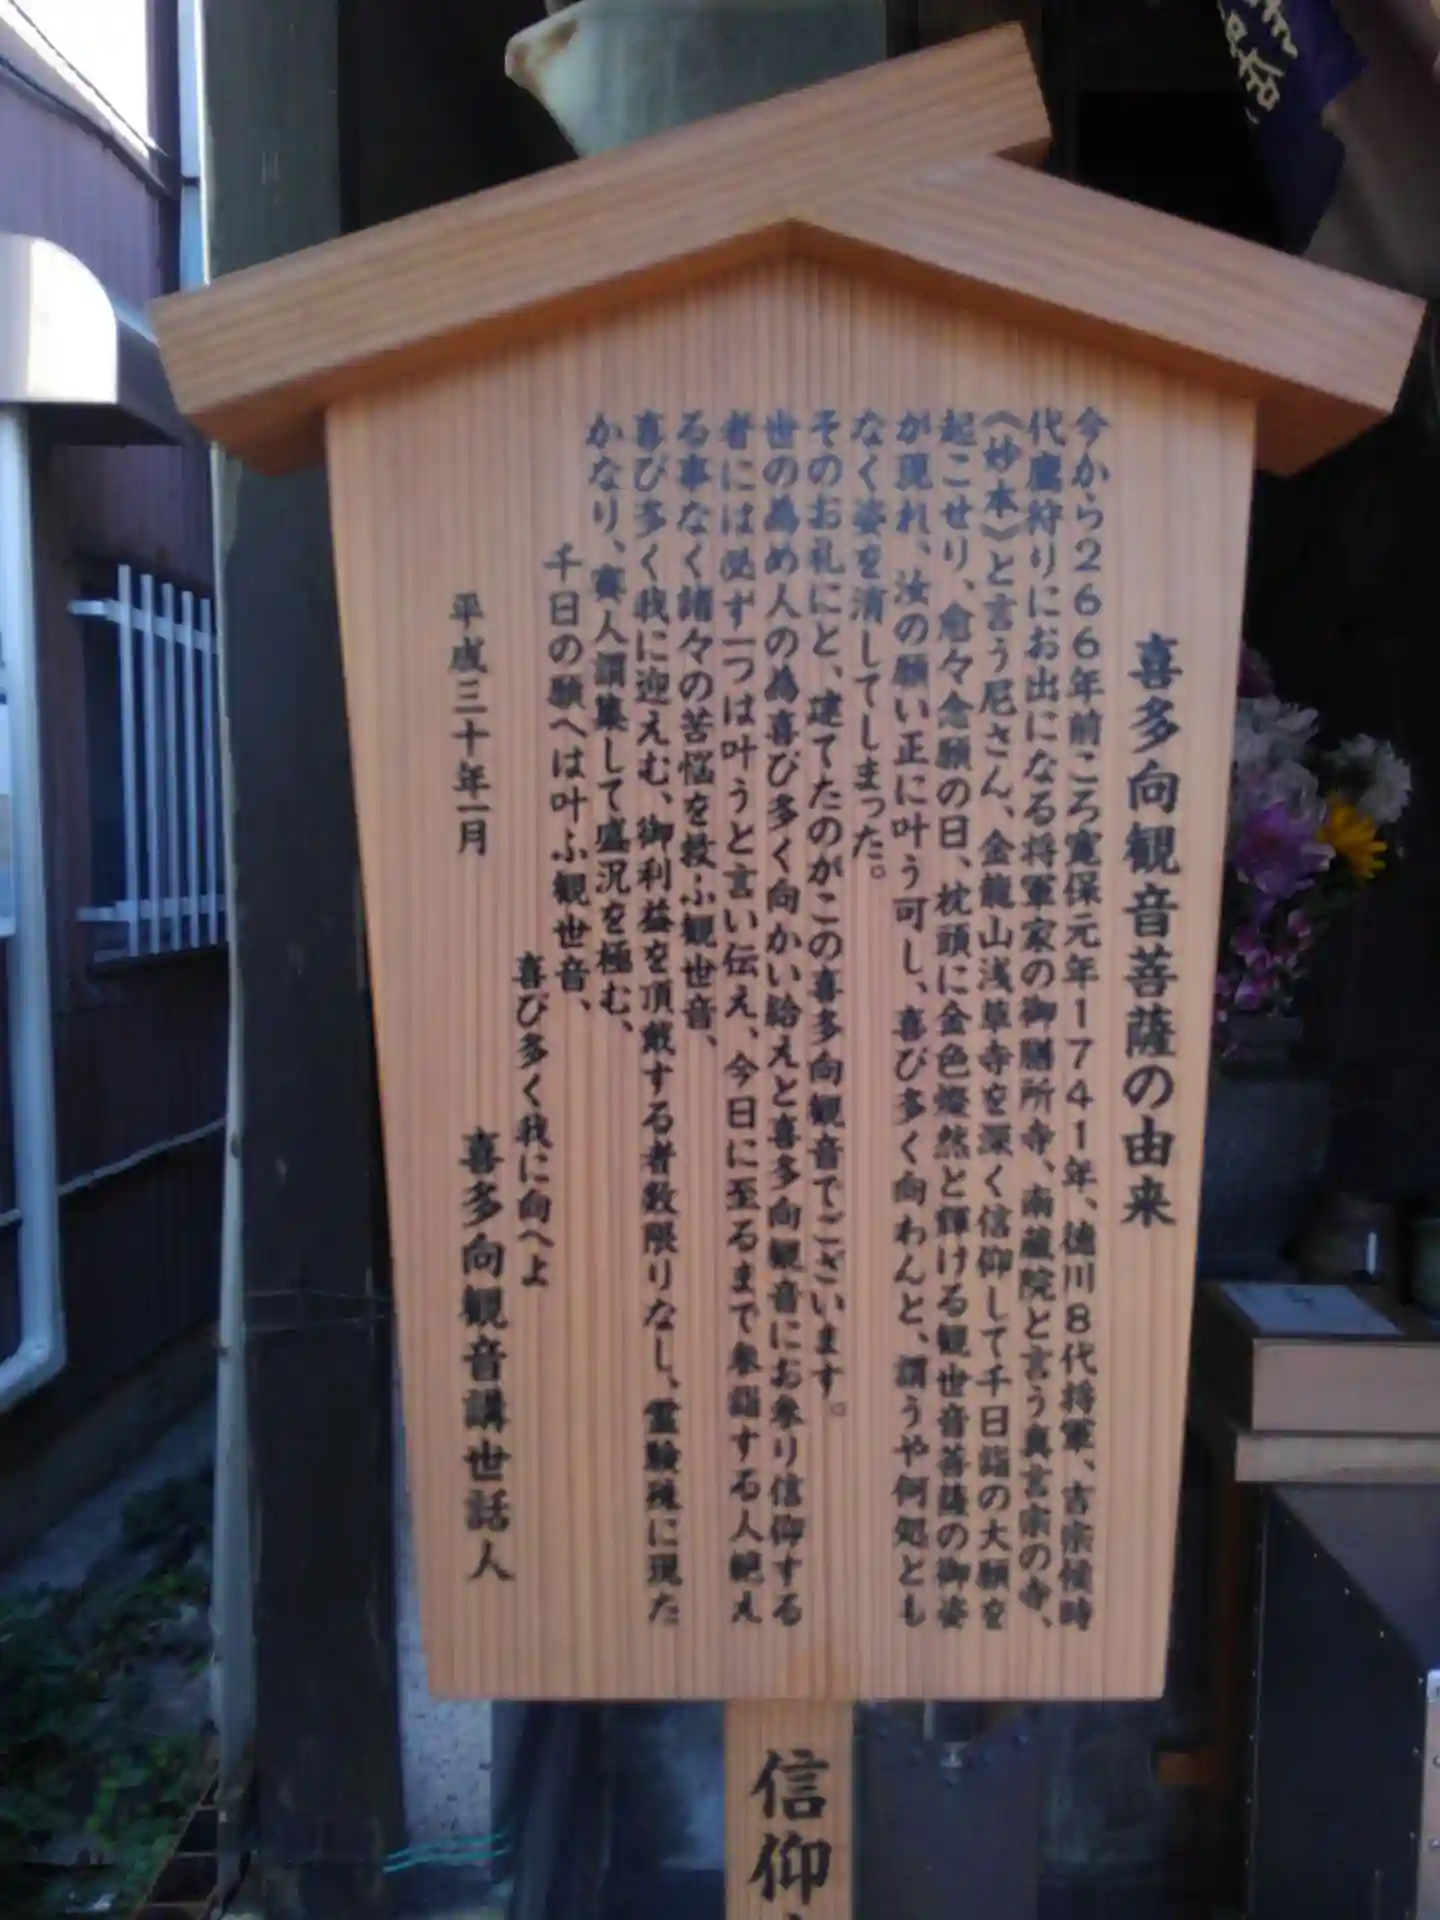 喜多向観音菩薩の由来
今から266年前ころ寛保元年1741年、徳川8代将軍、吉宗候時
代鷹狩りにお出になる将軍家の御膳所寺、南蔵院と言う真言宗の寺、
《妙本》と言う尼さん、金龍山浅草寺を深く信仰して千日詣の大願を
起こせり、愈々念願の日、枕頭に金色燦然と輝ける観世音菩薩の御姿
が現れ、汝の願い正に叶う可し、喜び多く向わんと、謂うや何処とも
なく姿を消してしまった。
そのお礼にと、建てたのがこの喜多向観音でございます。
世の為め人の為喜び多く向かい給えと喜多向観音にお参り信仰する
者には必ず一つは叶うと言い伝え、今日に至るまで参詣する人絶え
る事なく諸々の苦悩を救ふ観世音、
喜び多く我に迎えむ、御利益を頂戴する者数限りなし、霊験殊に現た
かなり、賽人謂集して盛況を極む、
千日の願へは叶ふ観世音、
喜び多く我に向へよ
平成三十年一月
喜多向観音講世話人
信仰